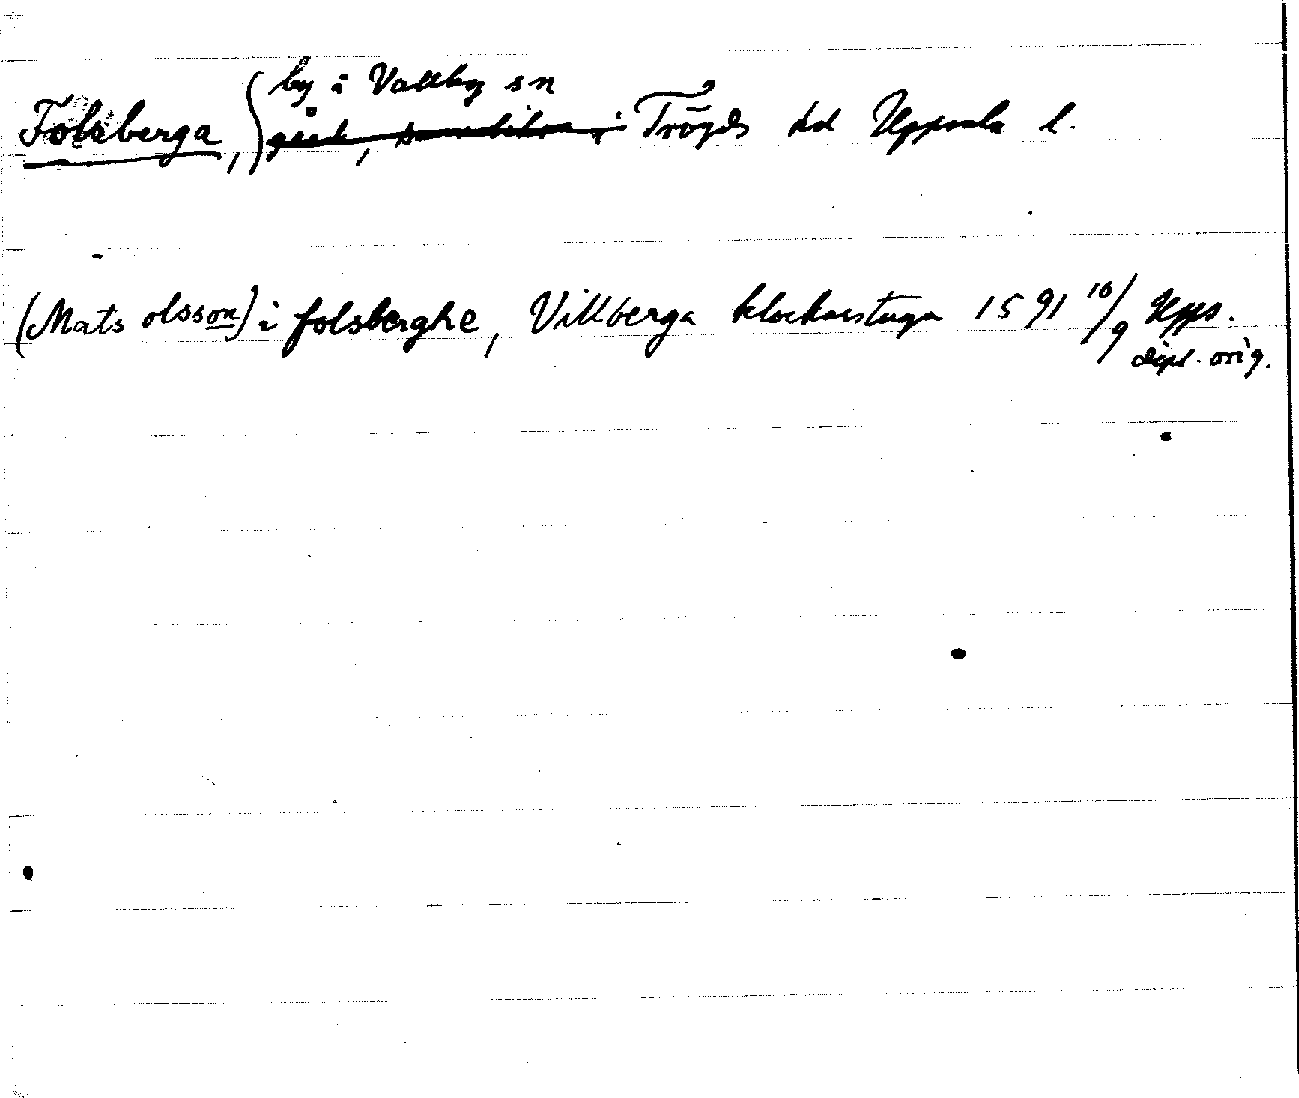 by i Vallby sn
Folsberga, gård, i Trögds hd Uppsala l.
(Mats olsson) i folsberghe, Villberga klockarstuga 1591 10/9 Upps.
dipl. orig.